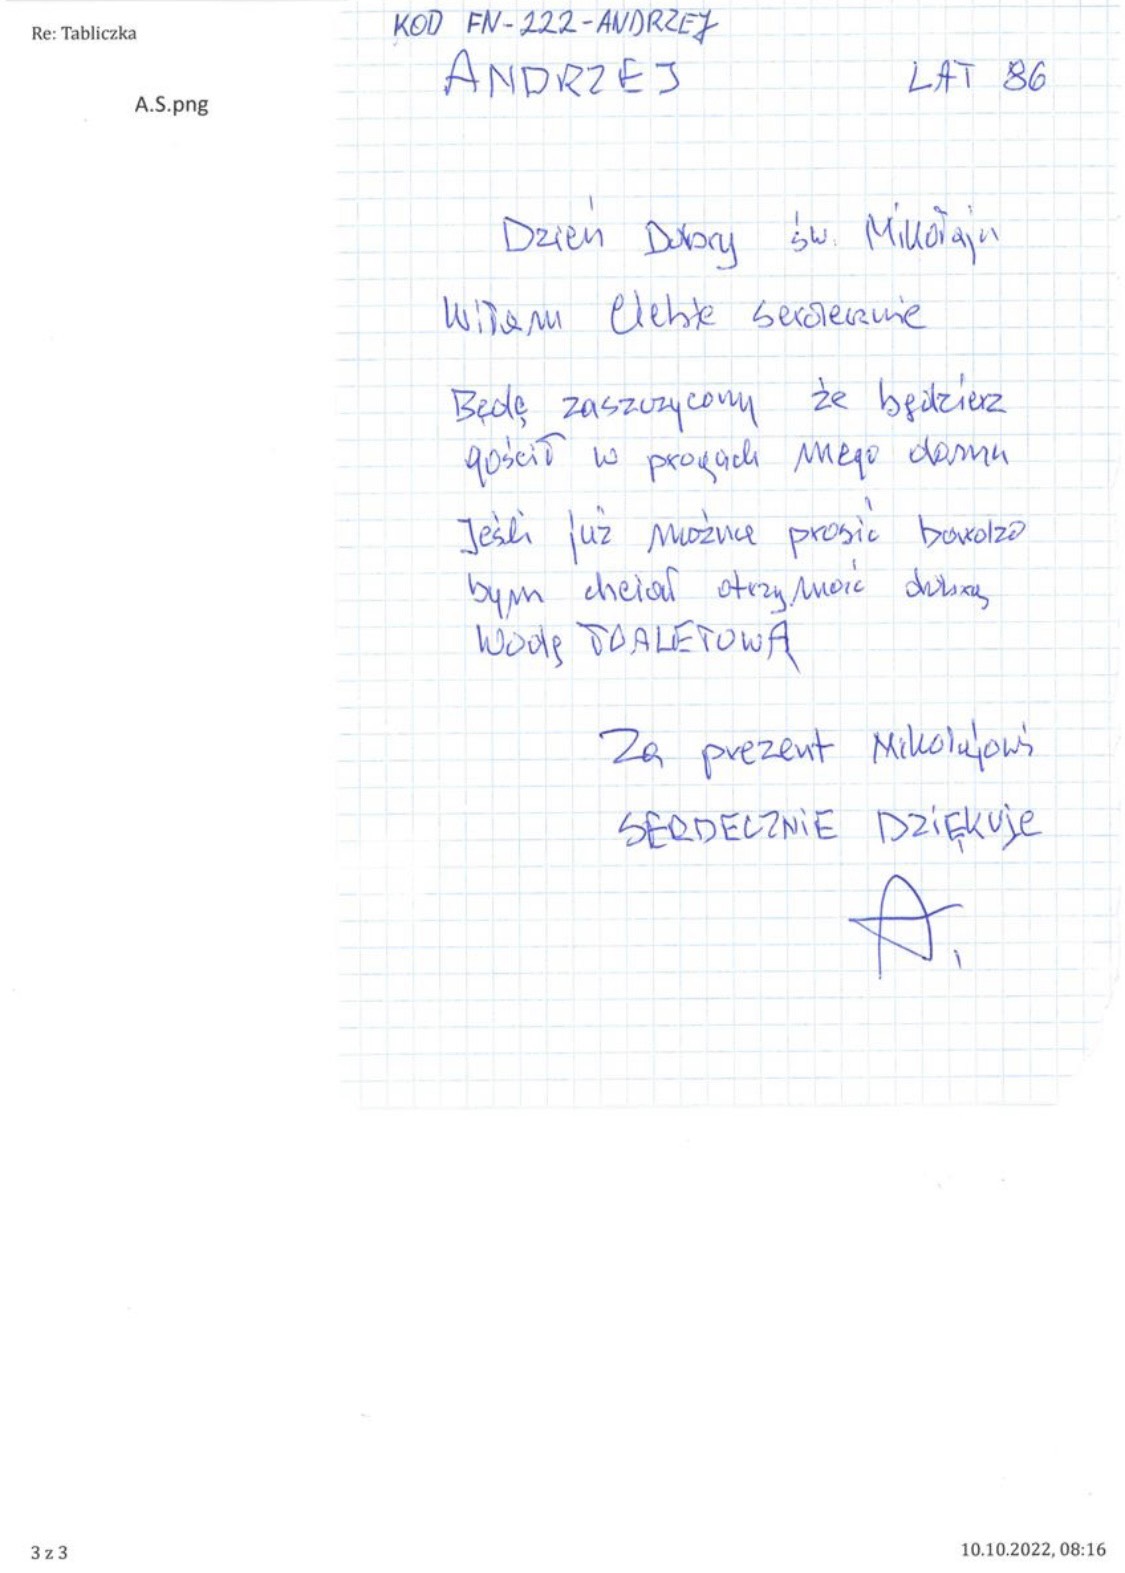 Re: Tabliczka
A.S.png
KOD FN-222-ANDRZEJ
ANDRZEJ LAT 86
Dzień Dobry św. Mikołaju
Witam Ciebie serdecznie
Będę zaszczycony że będziesz
gościł w progach mego domu
Jeśli już można prosić bardzo
bym chciał otrzymać dobrą
Wodę TOALETOWĄ
Za prezent Mikołajowi
SERDECZNIE DZIĘKUJE
A.
3 z 3
10.10.2022, 08:16